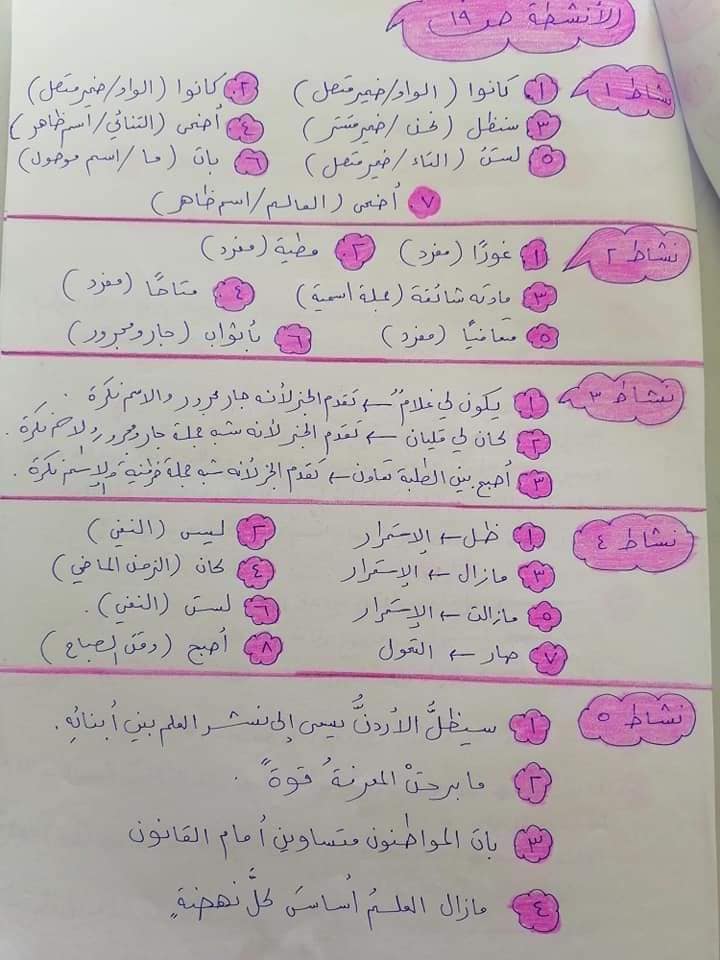 الأنشطة ص ١٩
نشاط ١
١. كانوا (الواو/ضمير متصل) ٢. كانوا (الواو/ضمير متصل)
٣. سنظل (نحن/ضمير مستتر) ٤. أضحى (التنائي/اسم ظاهر)
٥. لستُ (التاء/ضمير متصل) ٦. بات (ما/اسم موصول)
٧. أضحى (العالم/اسم ظاهر)
نشاط ٢
١. غورًا (مفرد) ٢. مطية (مفرد)
٣. مادته شائقة (جملة اسمية) ٤. متاحًا (مفرد)
٥. متعافيًا (مفرد) ٦. بأثواب (جار ومجرور)
نشاط ٣
١. يكون لي غلامٌ ← تقدم الخبر لأنه جار مجرور والاسم نكرة.
٢. كان لي قلبان ← تقدم الخبر لأنه شبه جملة جار ومجرور والاسم نكرة.
٣. أصبح بين الطلبة تعاون ← تقدم الخبر لأنه شبه جملة ظرفية والإسم نكرة.
نشاط ٤
١. ظل ← الإستمرار ٢. ليس (النفي)
٣. مازال ← الإستمرار ٤. كان (الزمن الماضي)
٥. مازالت ← الإستمرار ٦. لست (النفي).
٧. صار ← التحول ٨. أصبح (وقت الصباح)
نشاط ٥
١. سيظلُّ الأردنُّ يسعى إلى نشر العلم بين أبنائهِ.
٢. ما برحتْ المعرفةُ قوةً.
٣. بات المواطنون متساوين أمام القانون
٤. مازال العلمُ أساسَ كلَّ نهضةٍ